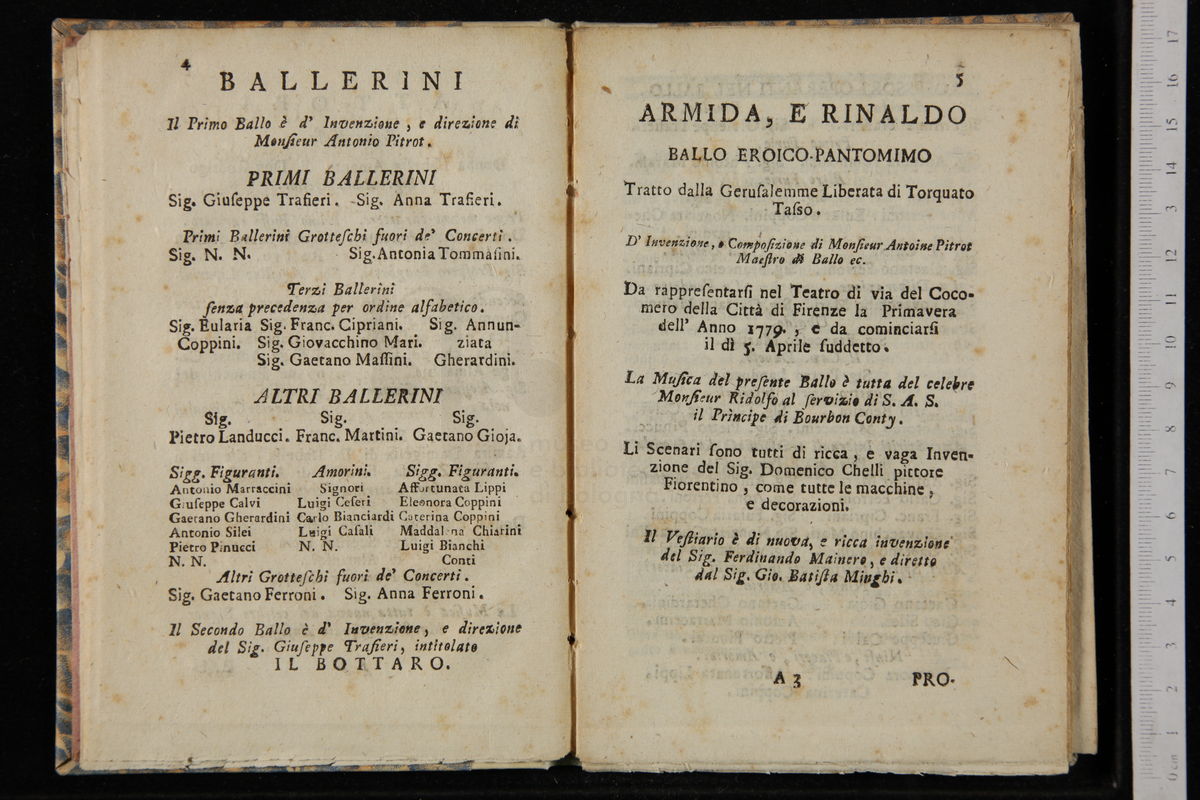 4
BALLERINI
Il Primo Ballo è d' Invenzione , e direzione di
Monſieur Antonio Pitrot.
PRIMI BALLERINI
Sig. Giuſeppe Traſieri. Sig. Anna Traſieri.
Primi Ballerini Grotteſchi fuori de' Concerti.
Sig. N. N. Sig. Antonia Tommaſini.
Terzi Ballerini
ſenza precedenza per ordine alfabetico.
Sig. Eularia Sig. Franc. Cipriani. Sig. Annun-
Coppini. Sig. Giovacchino Mari. ziata
Sig. Gaetano Maſſini. Gherardini.
ALTRI BALLERINI
Sig. Sig. Sig.
Pietro Landucci. Franc. Martini. Gaetano Gioja.
Sigg. Figuranti. Amorini. Sigg. Figuranti.
Antonio Marraccini Signori Affortunata Lippi
Giuſeppe Calvi Luigi Ceſeri Eleonora Coppini
Gaetano Gherardini Carlo Bianciardi Caterina Coppini
Antonio Silei Luigi Caſali Maddalena Chiarini
Pietro Pinucci N. N. Luigi Bianchi
N. N. Conti
Altri Grotteſchi fuori de' Concerti.
Sig. Gaetano Ferroni. Sig. Anna Ferroni.
Il Secondo Ballo è d' Invenzione, e direzione
del Sig. Giuſeppe Traſieri, intitolato
IL BOTTARO.
5
ARMIDA, E RINALDO
BALLO EROICO-PANTOMIMO
Tratto dalla Geruſalemme Liberata di Torquato
Taſſo.
D' Invenzione, e Compoſizione di Monſieur Antoine Pitrot
Maeſtro di Ballo ec.
Da rappreſentarſi nel Teatro di via del Coco-
mero della Città di Firenze la Primavera
dell' Anno 1779., e da cominciarſi
il dì 5. Aprile ſuddetto.
La Muſica del preſente Ballo è tutta del celebre
Monſieur Ridolfo al ſervizio di S. A. S.
il Principe di Bourbon Conty.
Li Scenari ſono tutti di ricca, e vaga Inven-
zione del Sig. Domenico Chelli pittore
Fiorentino, come tutte le macchine,
e decorazioni.
Il Veſtiario è di nuova, e ricca invenzione
del Sig. Ferdinando Mainero, e diretto
dal Sig. Gio. Batiſta Minghi.
A 3 PRO-
0 cm 1 2 3 4 5 6 7 8 9 10 11 12 3 14 15 16 17